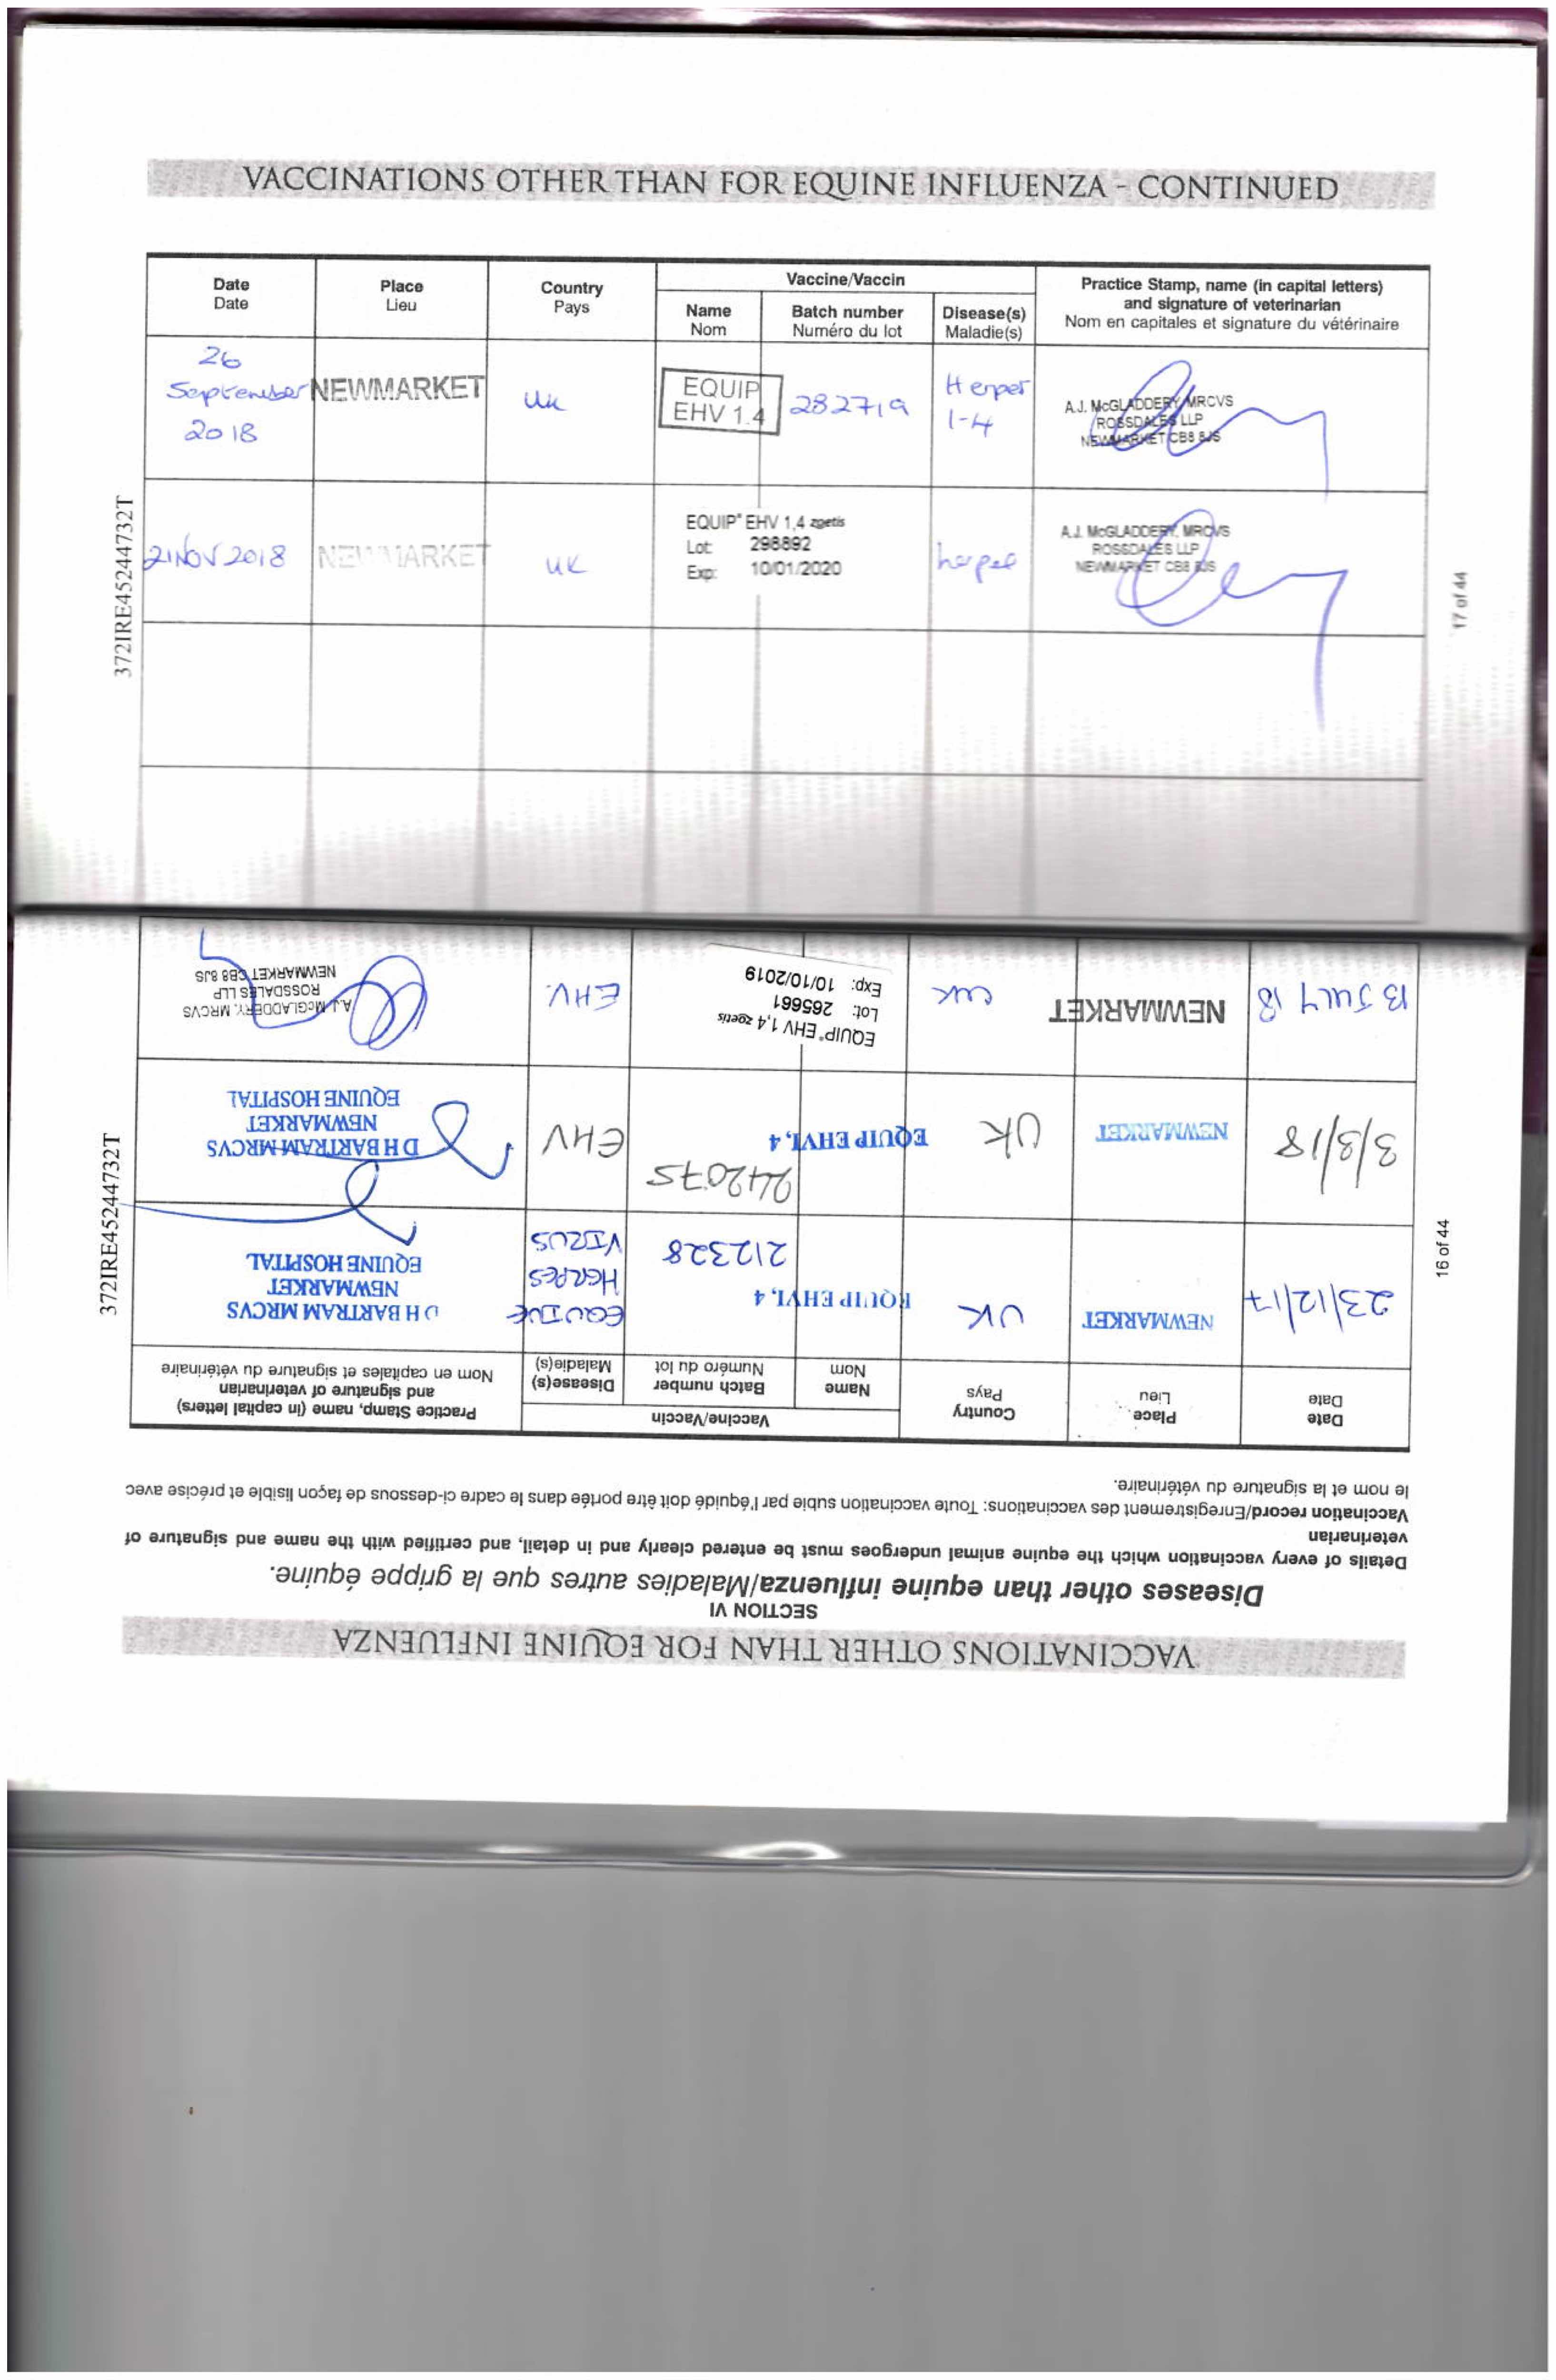 VACCINATIONS OTHER THAN FOR EQUINE INFLUENZA - CONTINUED
Date
Date
Place
Lieu
Country
Pays
Vaccine/Vaccin
Name
Nom
Batch number
Numéro du lot
Disease(s)
Maladie(s)
Practice Stamp, name (in capital letters)
and signature of veterinarian
Nom en capitales et signature du vétérinaire
26
September
2018
NEWMARKET
UK
EQUIP
EHV 1.4
282719
Herpes
1-4
A.J. McGLADDERY MRCVS
ROSSDALES LLP
NEWMARKET CB8 8JS
21 NOV 2018
NEWMARKET
UK
EQUIP® EHV 1,4 zoetis
Lot: 298892
Exp: 10/01/2020
herpes
A.J. McGLADDERY, MRCVS
ROSSDALES LLP
NEWMARKET CB8 8JS
372IRE45244732T
17 of 44
VACCINATIONS OTHER THAN FOR EQUINE INFLUENZA
SECTION VI
Diseases other than equine influenza/Maladies autres que la grippe équine.
Details of every vaccination which the equine animal undergoes must be entered clearly and in detail, and certified with the name and signature of
veterinarian
Vaccination record/Enregistrement des vaccinations: Toute vaccination subie par l'équidé doit être portée dans le cadre ci-dessous de façon lisible et précise avec
le nom et la signature du vétérinaire.
Date
Date
Place
Lieu
Country
Pays
Vaccine/Vaccin
Name
Nom
Batch number
Numéro du lot
Disease(s)
Maladie(s)
Practice Stamp, name (in capital letters)
and signature of veterinarian
Nom en capitales et signature du vétérinaire
23/12/17
NEWMARKET
UK
EQUIP EHV1,4
212328
EQUINE
HERPES
VIRUS
D H BARTRAM MRCVS
NEWMARKET
EQUINE HOSPITAL
3/3/18
NEWMARKET
UK
EQUIP EHV1,4
242075
EHV
D H BARTRAM MRCVS
NEWMARKET
EQUINE HOSPITAL
13 JULY 18
NEWMARKET
UK
EQUIP® EHV 1,4 zoetis
Lot: 265661
Exp: 10/10/2019
EHV.
A.J. McGLADDERY, MRCVS
ROSSDALES LLP
NEWMARKET CB8 8JS
16 of 44
372IRE45244732T